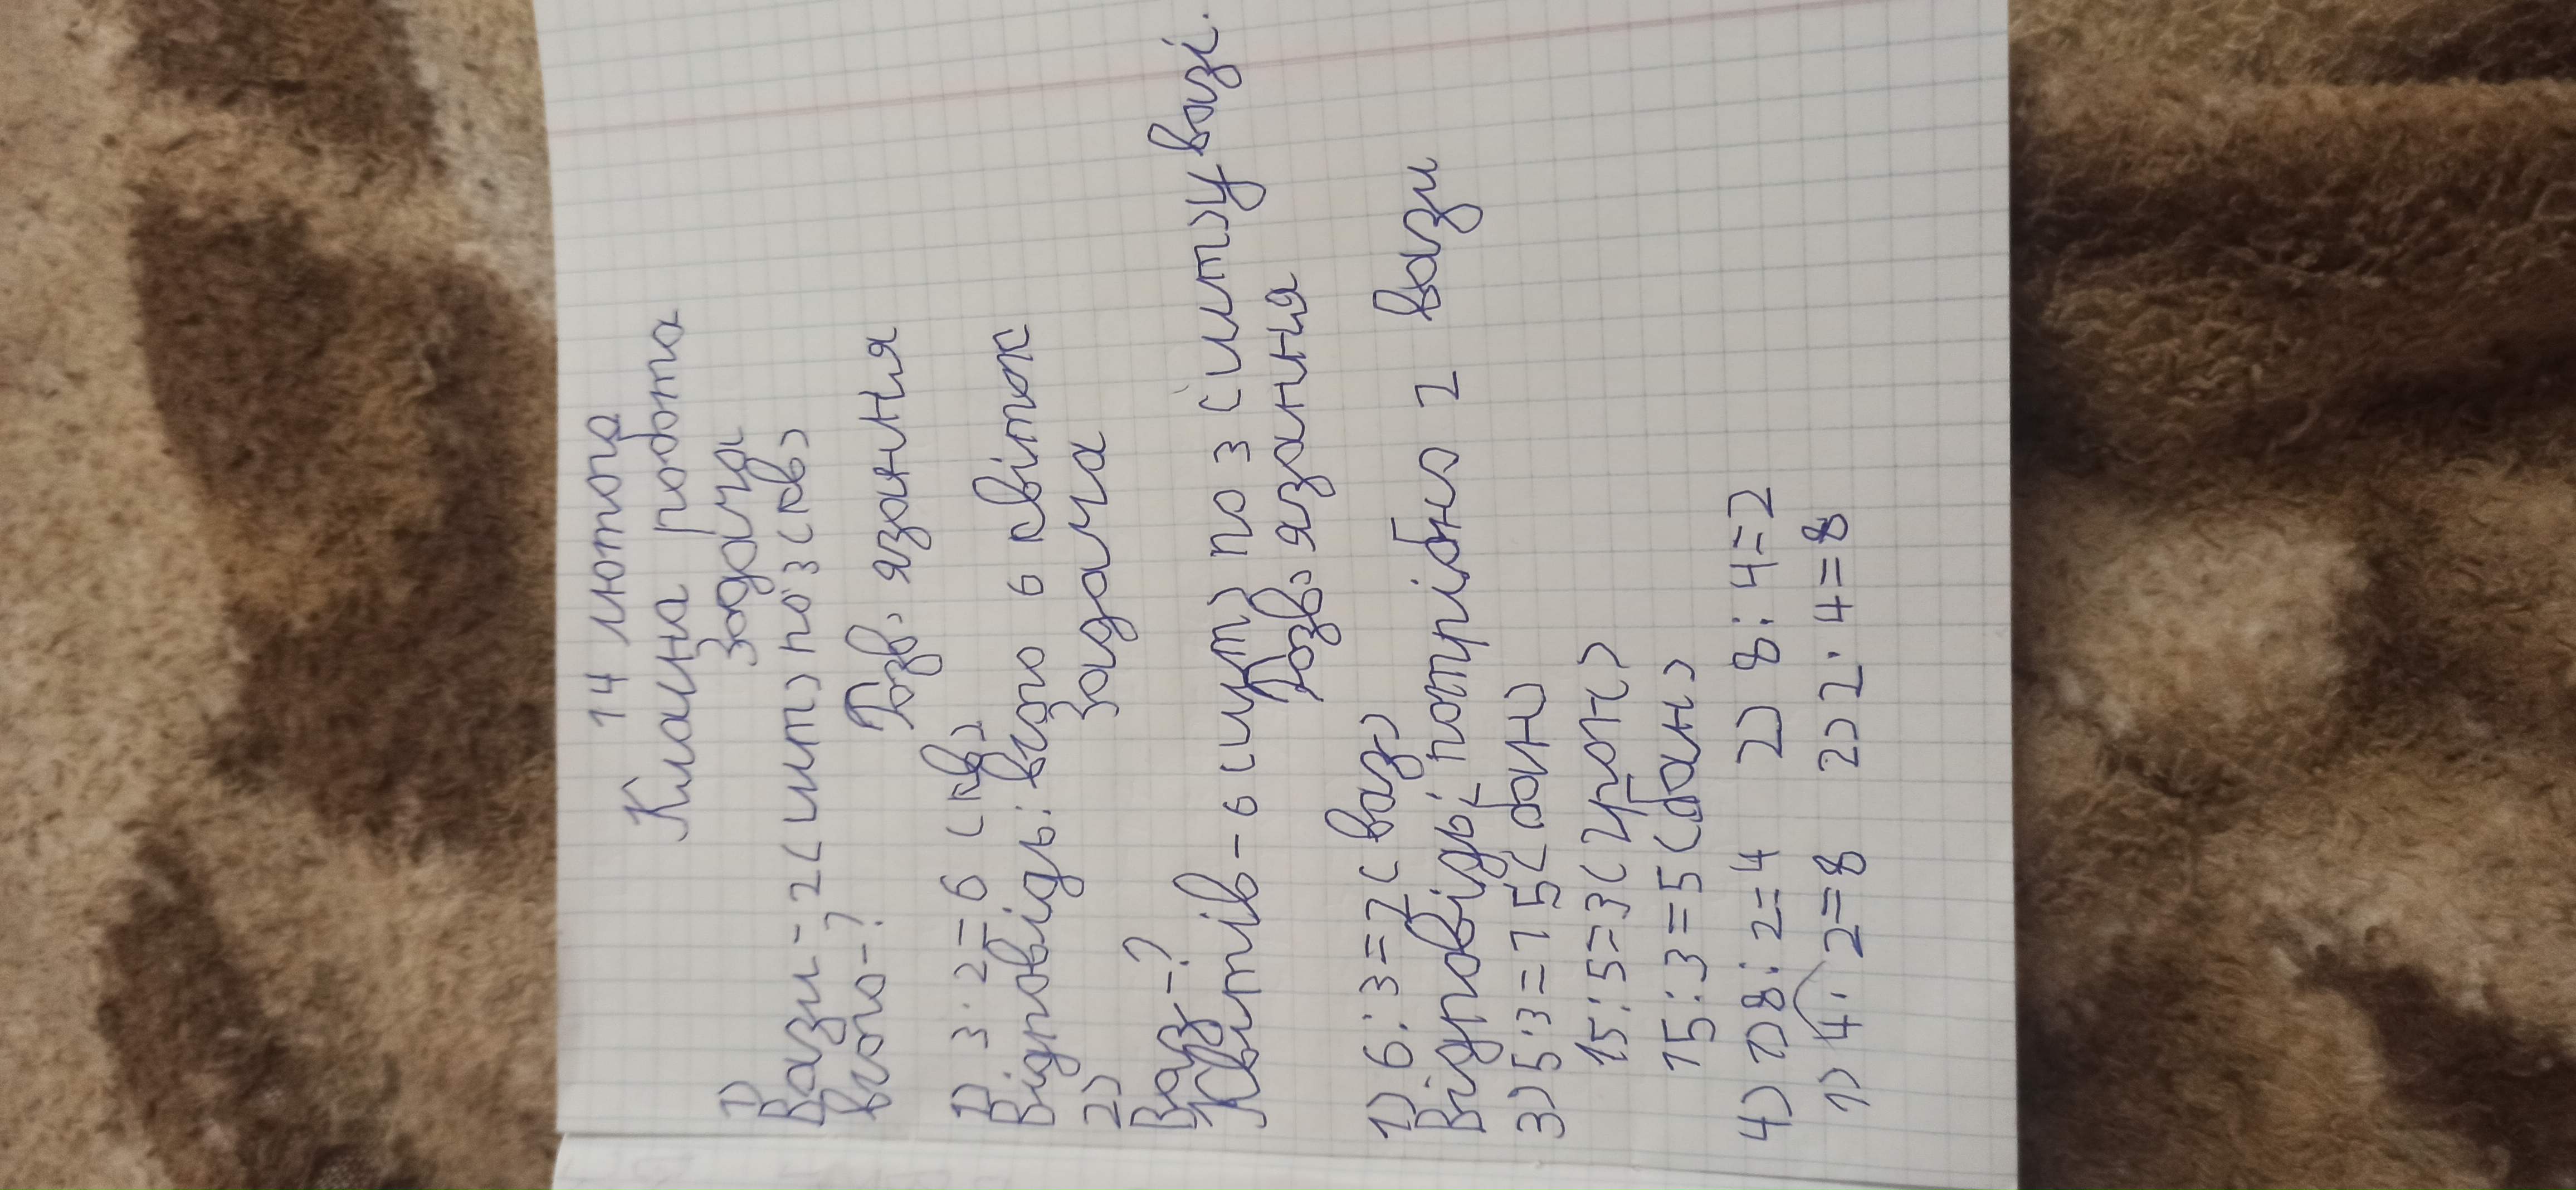 14 лютого
Класна робота
Задача
1)
Вази - 2 (шт) по 3 (кв)
всього - ?
Розв'язання
1) 3 · 2 = 6 (кв)
Відповідь: всього 6 квіток
2) Задача
Ваз - ?
Квітів - 6 (шт) по 3 (шт) у вазі.
Розв'язання
1) 6 : 3 = 2 (ваз)
Відповідь: потрібно 2 вази
3) 5 · 3 = 15 (бан)
15 : 5 = 3 (грон)
15 : 3 = 5 (бан)
4) 1) 8 : 2 = 4 2) 8 : 4 = 2
1) 4 · 2 = 8 2) 2 · 4 = 8